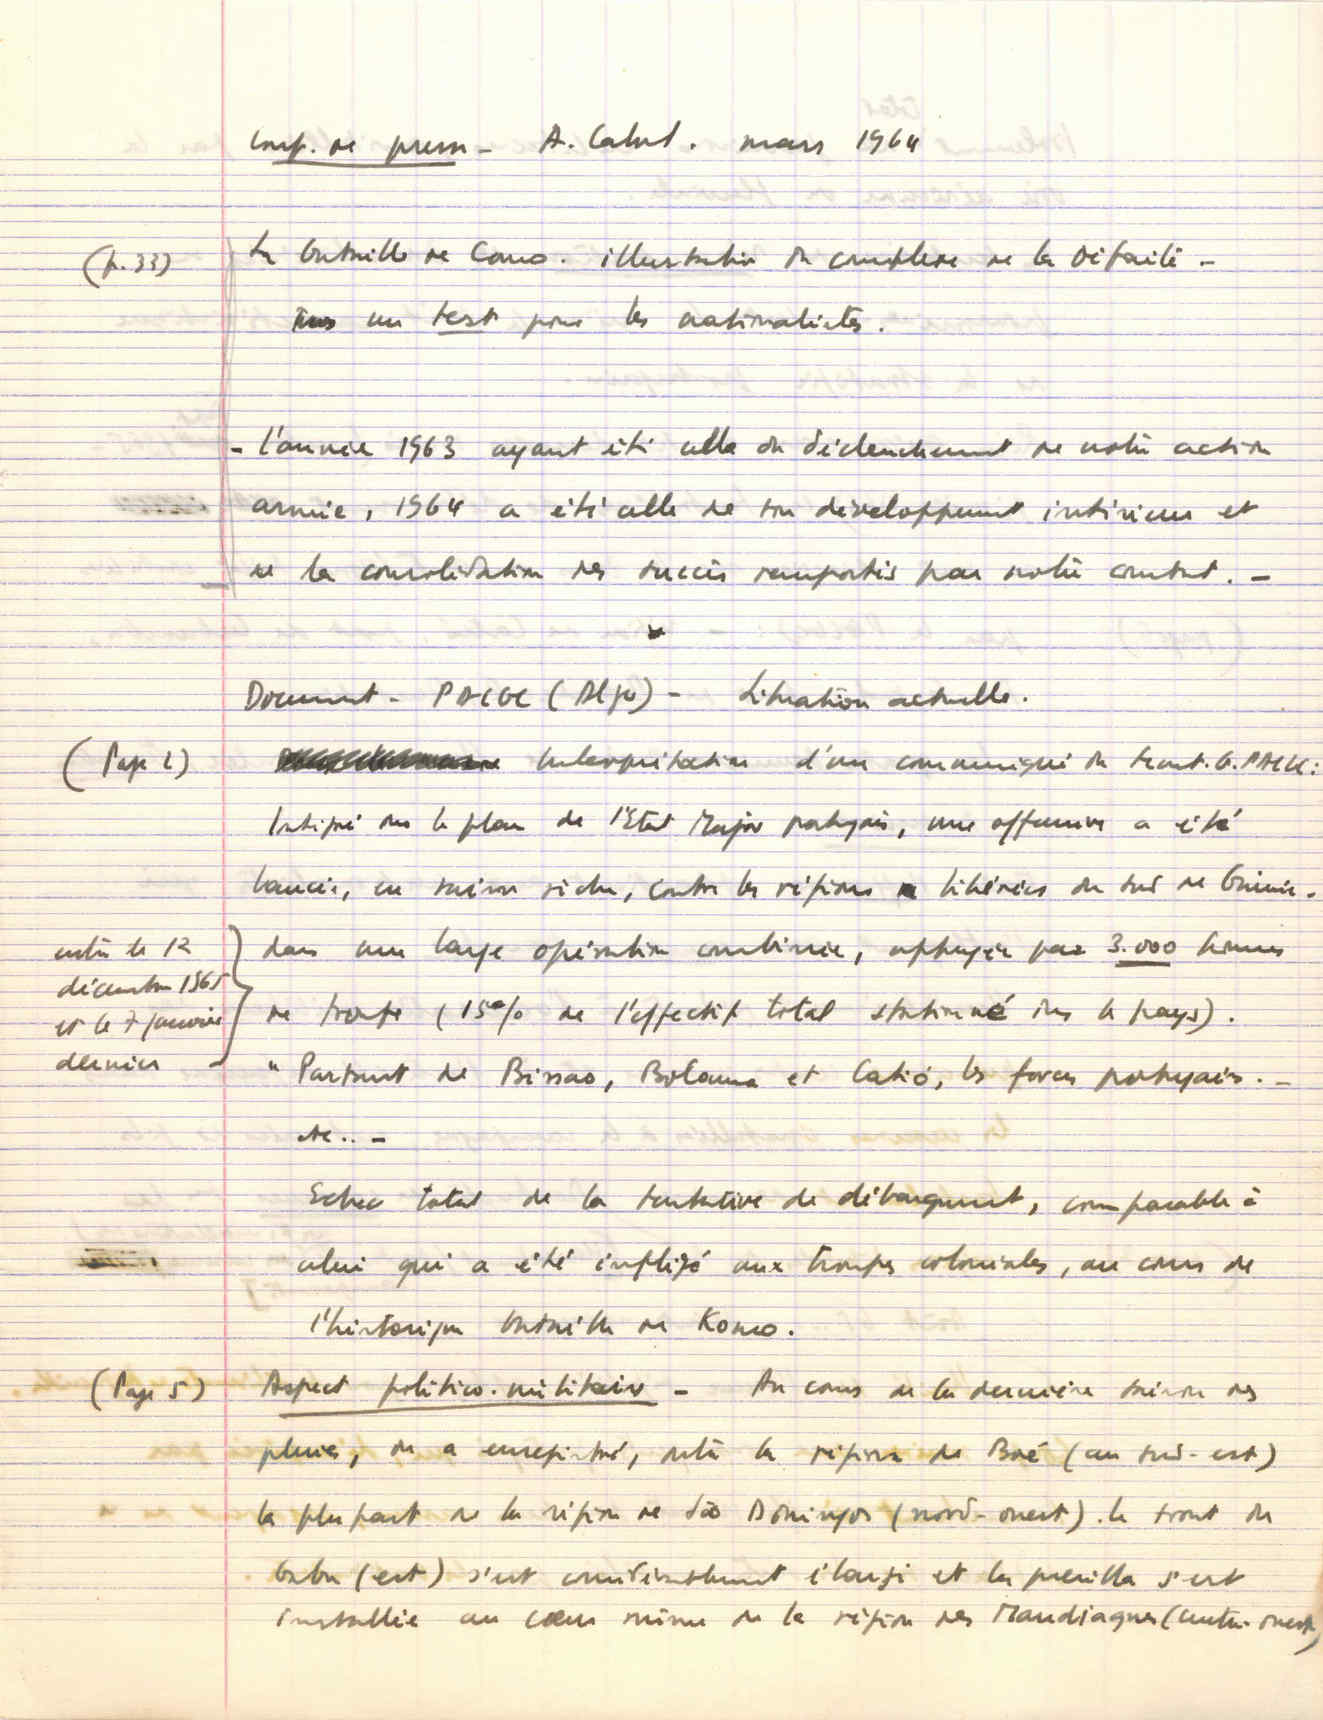 Conf. de presse - A. Cabral. mars 1964
(p.33) La bataille de Como. illustration du complexe de la défaite -
un test pour les nationalistes.
- L'année 1963 ayant été celle du déclenchement de notre action
armée, 1964 a été celle de son développement intérieur et
de la consolidation des succès remportés par notre combat. -
Document - PAIGC (Alger) - Situation actuelle.
(Page 2) Interprétation d'un communiqué du PAIGC:
Intégré dans le plan de l'Etat Major portugais, une offensive a été
lancée, en saison sèche, contre les régions libérées du sud de Guinée.
dans une large opération combinée, appuyée par 3.000 hommes
de troupe (15% de l'effectif total stationné dans le pays).
entre le 12
décembre 1965
et le 7 janvier
dernier
" Partant de Bissao, Bolama et Catió, les forces portugaises. -
etc.. -
Echec total de la tentative de débarquement, comparable à
celui qui a été infligé aux troupes coloniales, au cours de
l'historique bataille de Komo.
(Page 5) Aspect politico-militaire - Au cours de la dernière saison des
pluies, on a enregistré, outre la région de Boé (au sud-est)
la plupart de la région de São Domingos (nord-ouest). le front de
Gabu (est) s'est considérablement élargi et la guerilla s'est
installée au cœur même de la région des Mandiagues (centre-ouest)